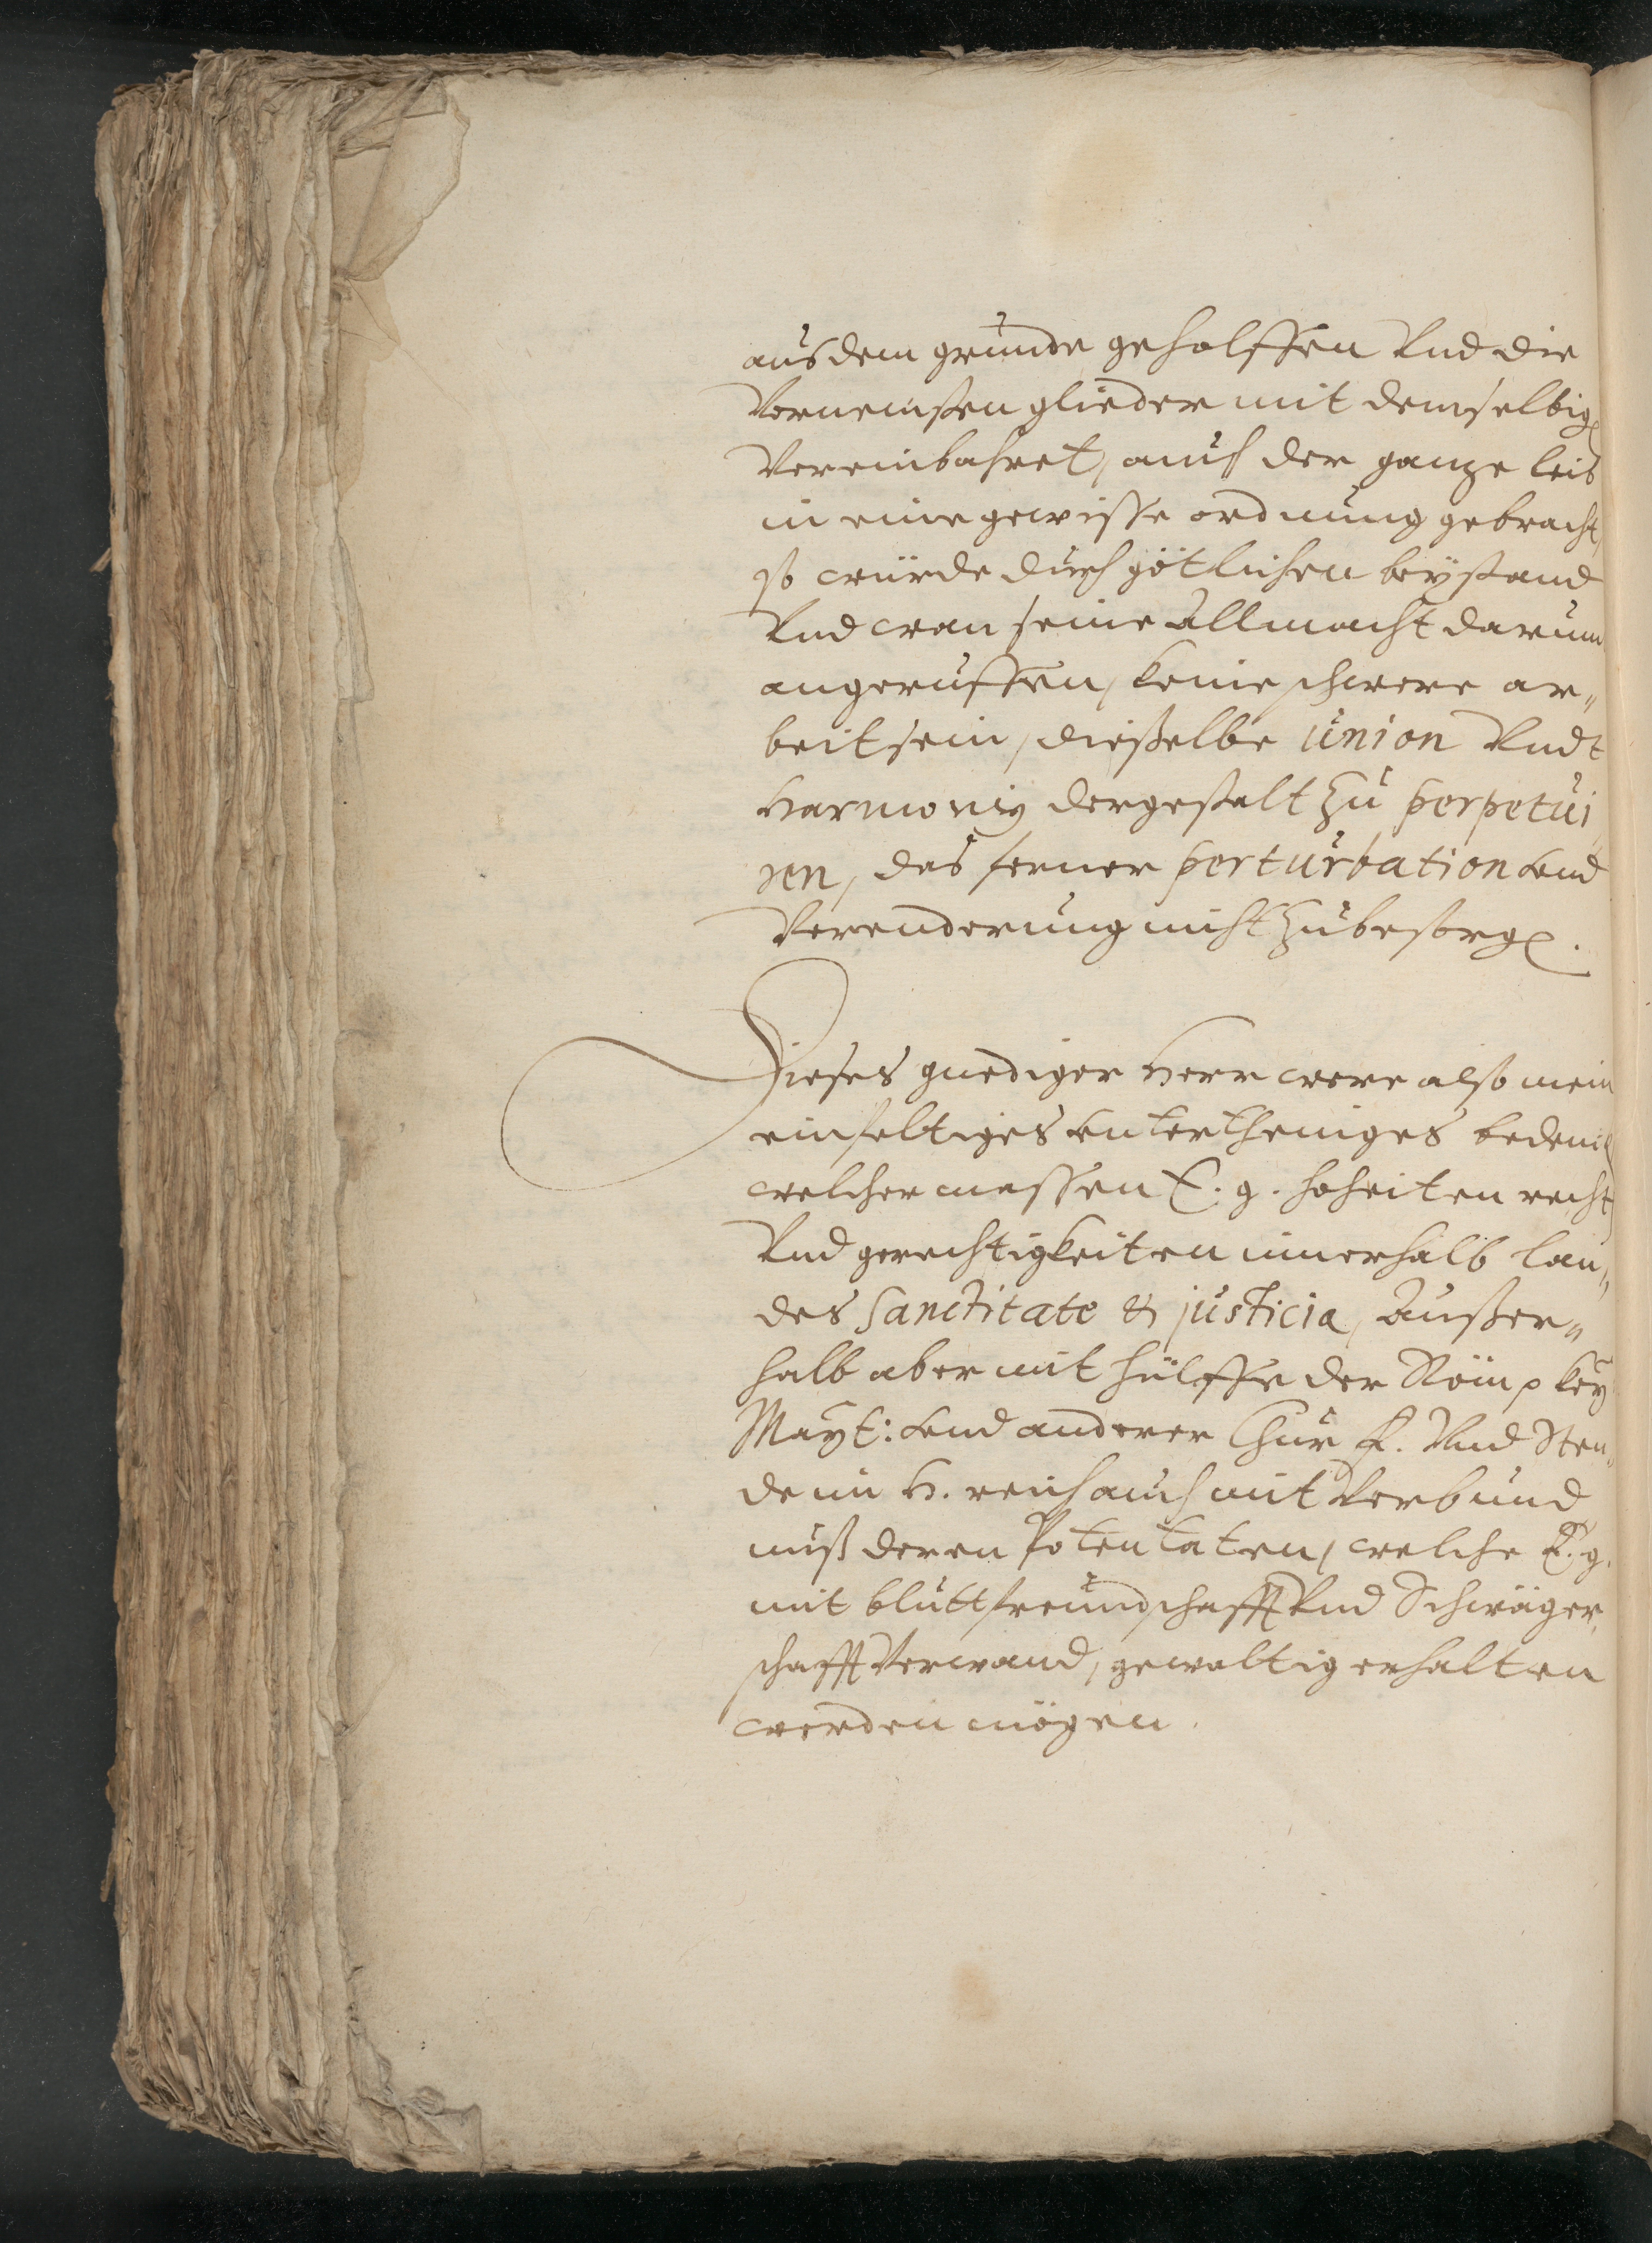 aus dem grunde geholffen Vnd die
Vornemsten glieder mit demselbig
Vereinbahret, auch der ganze leib
in eine gewisse ordnung gebracht,
so würde durch götlichen beystand
Vnd wan seine Allmacht darum
angeruffen, keine schwere ar„
beit sein, dieselbe union Vndt
Harmoniy dergestalt zu perpetui
ren, das ferner perturbation vnd
Verenderung nicht zubesorg.
Dieses gnediger Herr were also mein
einfeltiges vntertheniges bedenck
welcher massen E. g. hoheiten recht
Vnd gerechtigkeiten innerhalb lan„
des Sanctitate & justicia, Außer„
halb aber mit hülffe der Röm kay
Mayt: vnd anderer Chur F. Vnd Sten„
de im H. reich auch mit Verbund
nuß deren Potentaten, welche E. g.
mit bluttfreundschafft Vnd Schwäger„
schafft Verwand, gewaltig erhalten
werden mögen.